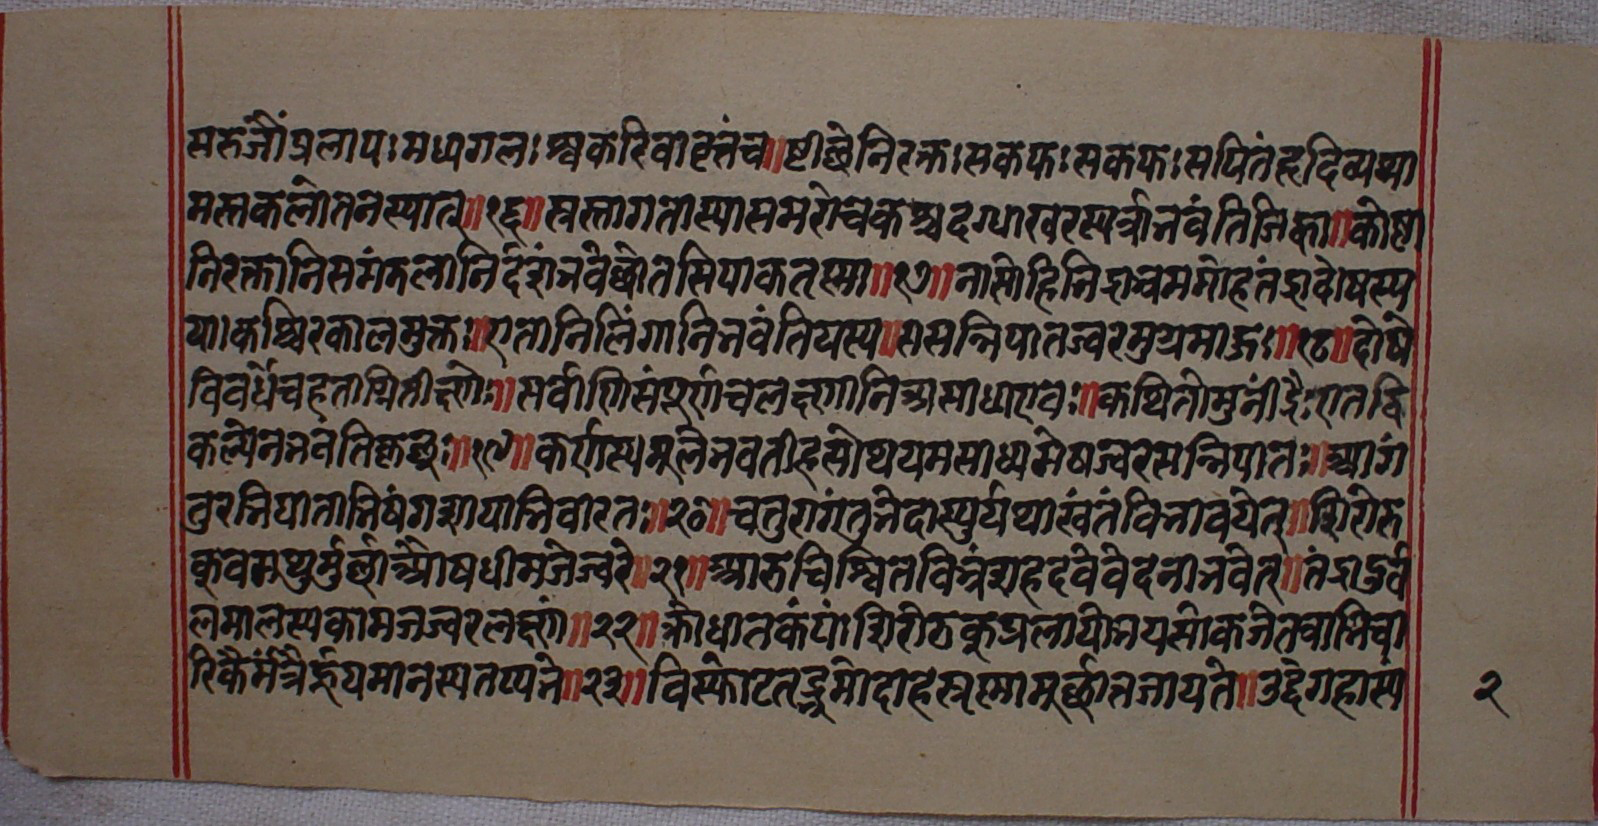 सरुजौ प्रलापः मध्यगलः श्वकरिवावृतं च॥ ष्टीछे निरक्तः सकफः सकफः सपितं हृदि व्यथा
मस्तकलोतनस्यात्॥१६॥ स्रस्तागतास्यासमरोचकश्चदग्धाखरस्पर्शाभवंतिजिह्वा॥ कोष्टा
निरक्तानिसमंडलानि र्दशंभवेच्छोतसिपाकतस्मा॥१७॥ नासोहिनिद्राश्चममोहतंद्रादोषस्प
या।कश्चिरकालमुक्तः॥ एतानिलिंगानिभवंतियस्य॥ ससन्निपातज्वरमुग्रमाङः॥१८॥ दोषे
विवर्धेचहताग्नितीक्ष्णोः॥ सर्वाणिसंपूर्णचलक्षणानिअसाध्यएवः॥ कथितोमुनींद्रैः एतद्वि
कल्पेनभवंतिकृछ्रः॥१९॥ कर्णस्यमूलेभवतीहसोथयमसाध्यमेषज्वरसन्निपातः॥ आगं
तुरभिघाताभिषंगश्रापाभिवारतः॥२०॥ चतुरागंतुभेदास्युर्यथास्वंतंविभावयेत्॥ शिरोरु
क्वमथुर्मुर्छाऔषधीमजेज्वरे॥२१॥ आरुचिश्चितविभ्रंशहृदवेवेदनाभवेत्॥ तंद्रादुर्व
लमालस्यकामजज्वरलक्षणं॥२२॥ क्रोधातकंपोशिरोठकूप्रलापोभयसोकजेतवाभिचा
रिकैर्मंत्रैर्हूयमानस्यतप्यने॥२३॥ विस्फोटतद्भ्रूमोदाहस्तृस्मामूर्छाभजायते॥ उद्वेगहास्यं
२